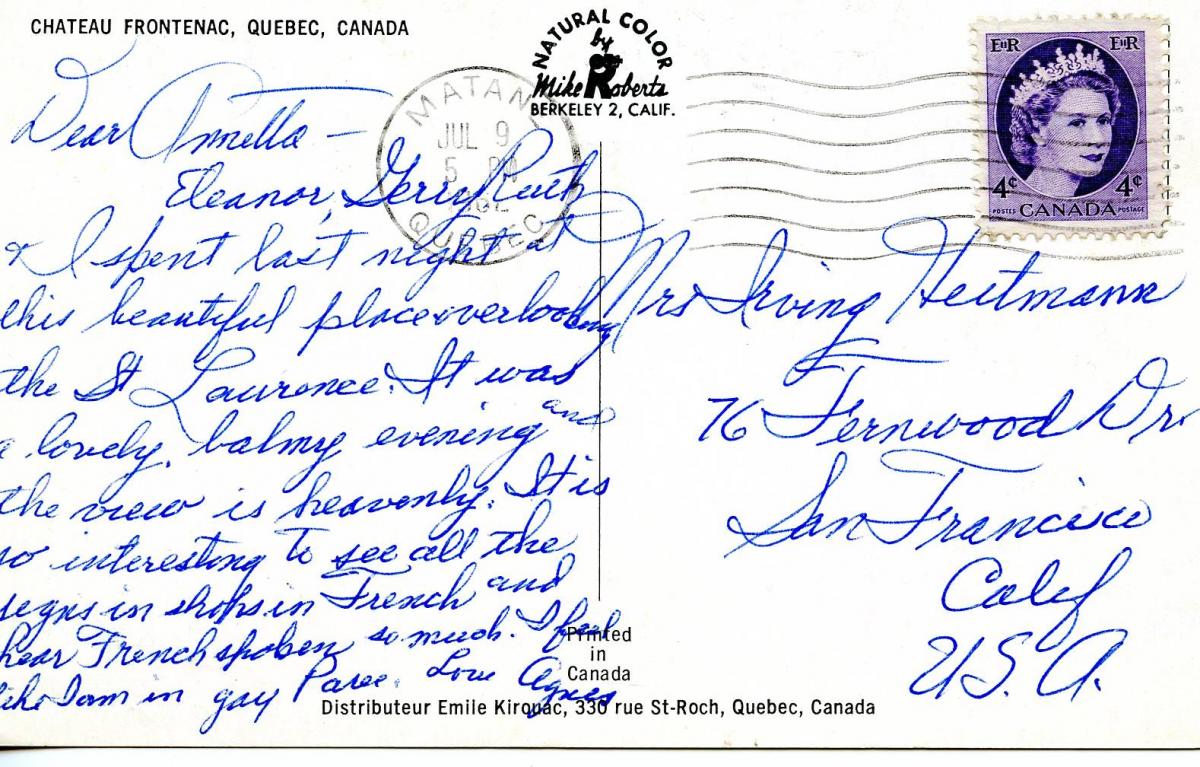 CHATEAU FRONTENAC, QUEBEC, CANADA
NATURAL COLOR
by
Mike Roberts
BERKELEY 2, CALIF.
MATAN
JUL 9
5 PM
QUEBEC
EIIR EIIR
4¢ 4¢
POSTES CANADA POSTAGE
Dear Annella —
Eleanor, Gerry Ruth
& I spent last night at
this beautiful place overlooking
the St Laurence. It was
a lovely, balmy evening and
the view is heavenly. It is
so interesting to see all the
signs in shops in French and
hear French spoken so much. I feel
like I am in gay Paree. Love Agnes
Mrs Irving Heitmann
76 Fernwood Dr.
San Francisco
Calif
U.S.A.
Printed
in
Canada
Distributeur Emile Kirouac, 330 rue St-Roch, Quebec, Canada